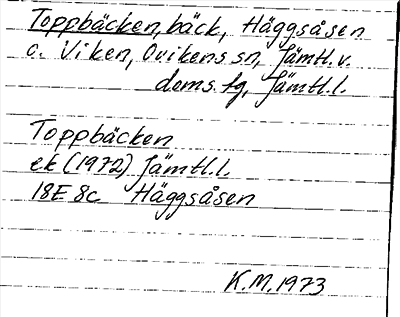 Toppbäcken, bäck, Häggsåsen
o. Viken, Ovikens sn, Jämtl.v.
doms.tg, Jämtl.l.
Toppbäcken
ek (1972) Jämtl.l.
18E 8c Häggsåsen
K.M. 1973